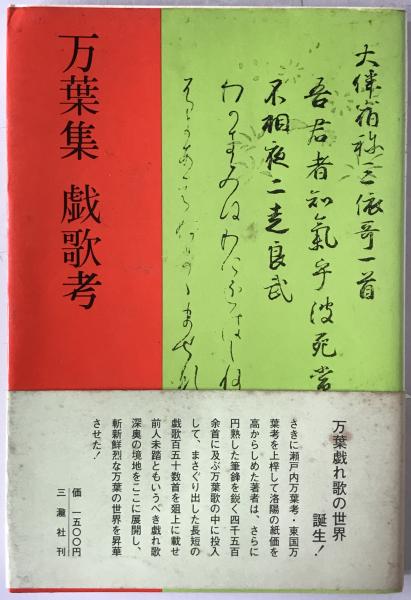 万葉集 戯歌考
大伴宿祢三依哥一首
吾君者和氣乎波死常
不相夜二走良武
わかきみはわけをはしね
万葉戯れ歌の世界
誕生!
さきに瀬戸内万葉考・東国万
葉考を上梓して洛陽の紙価を
高からしめた著者は、さらに
円熟した筆鋒を鋭く四千五百
余首に及ぶ万葉歌の中に投入
して、まさぐり出した長短の
戯歌百五十数首を俎上に載せ
前人未踏ともいうべき戯れ歌
深奥の境地をここに展開し、
斬新鮮烈な万葉の世界を昇華
させた!
価 一五〇〇円